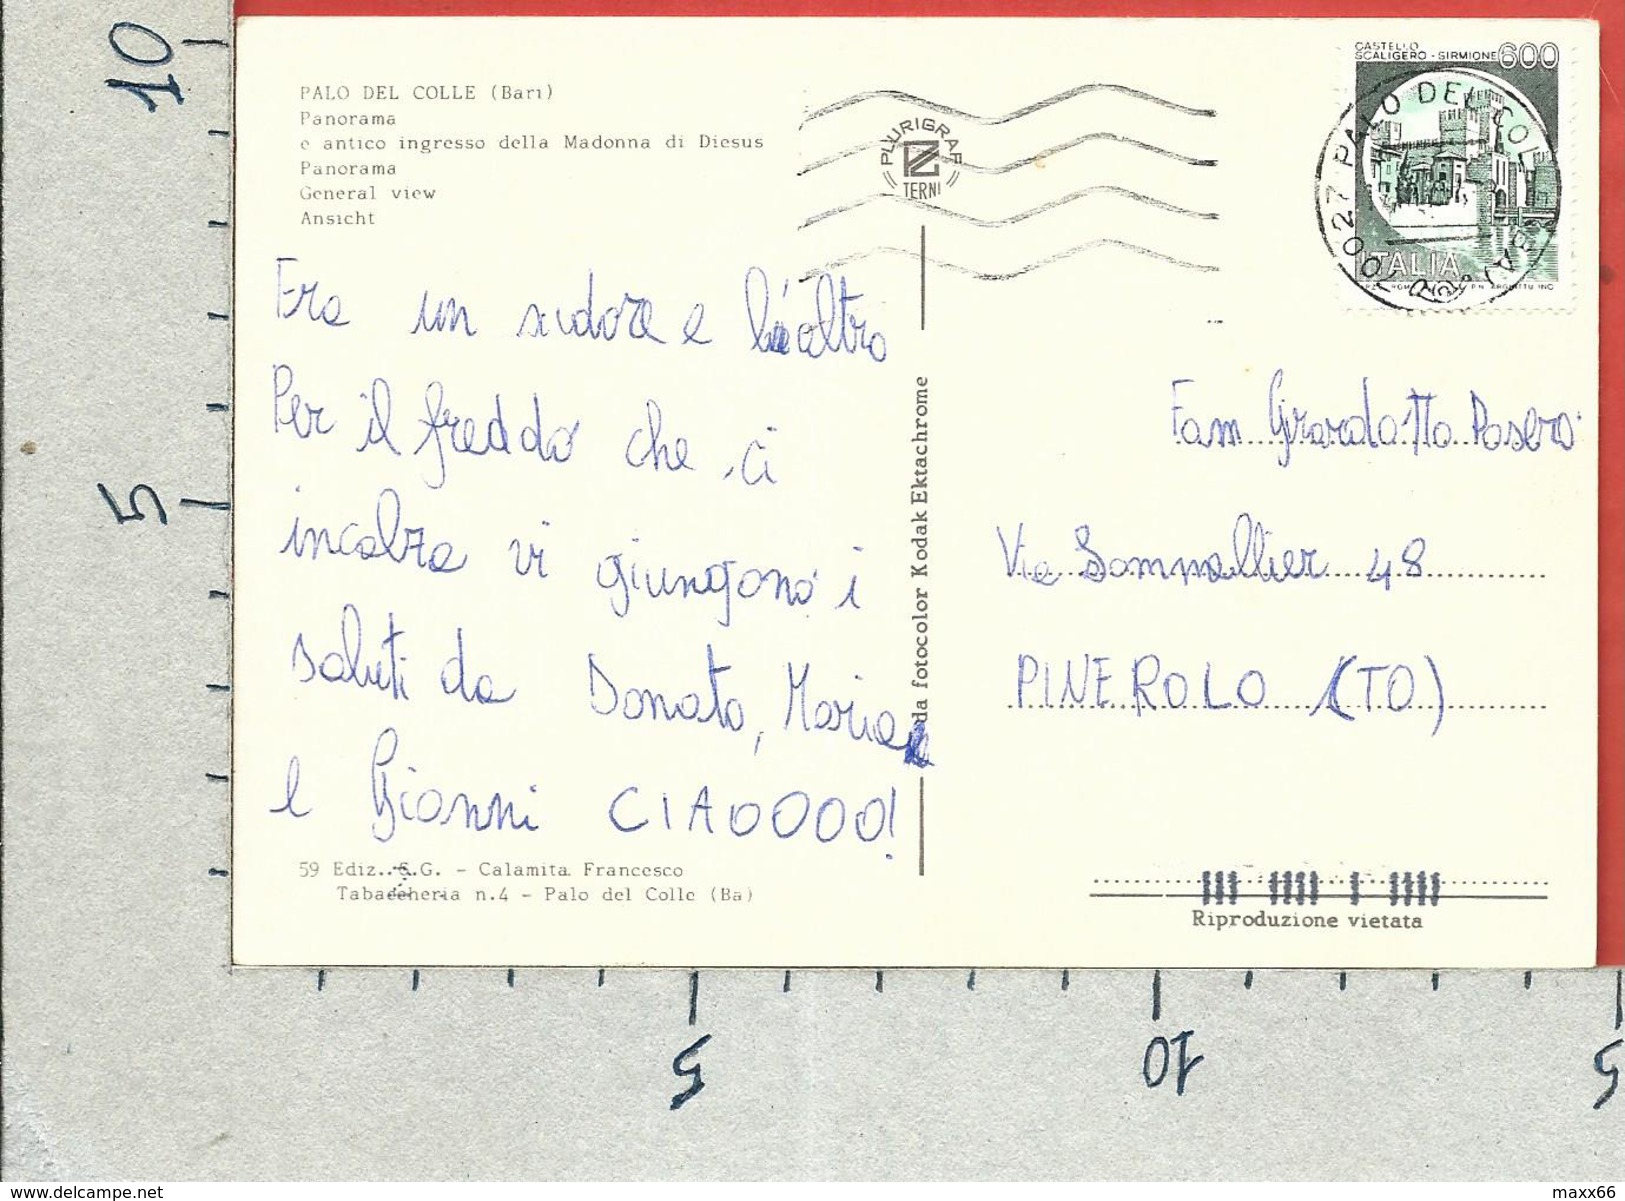 10
5
5
10
5
PALO DEL COLLE (Bari)
Panorama
e antico ingresso della Madonna di Diesus
Panorama
General view
Ansicht
PLURIGRAF
TERNI
CASTELLO
SCALIGERO - SIRMIONE 600
ITALIA
70027 PALO DEL COL
Era un sudore e l'altro
Per il freddo che ci
incalza vi giungono i
saluti da Donato, Maria
e Gianni CIAOOOO!
da fotocolor Kodak Ektachrome
Fam Girardatto
Via Sommellier 48
PINEROLO (TO)
59 Ediz. S.G. - Calamita Francesco
Tabaccheria n.4 - Palo del Colle (Ba)
Riproduzione vietata
www.delcampe.net
maxx66